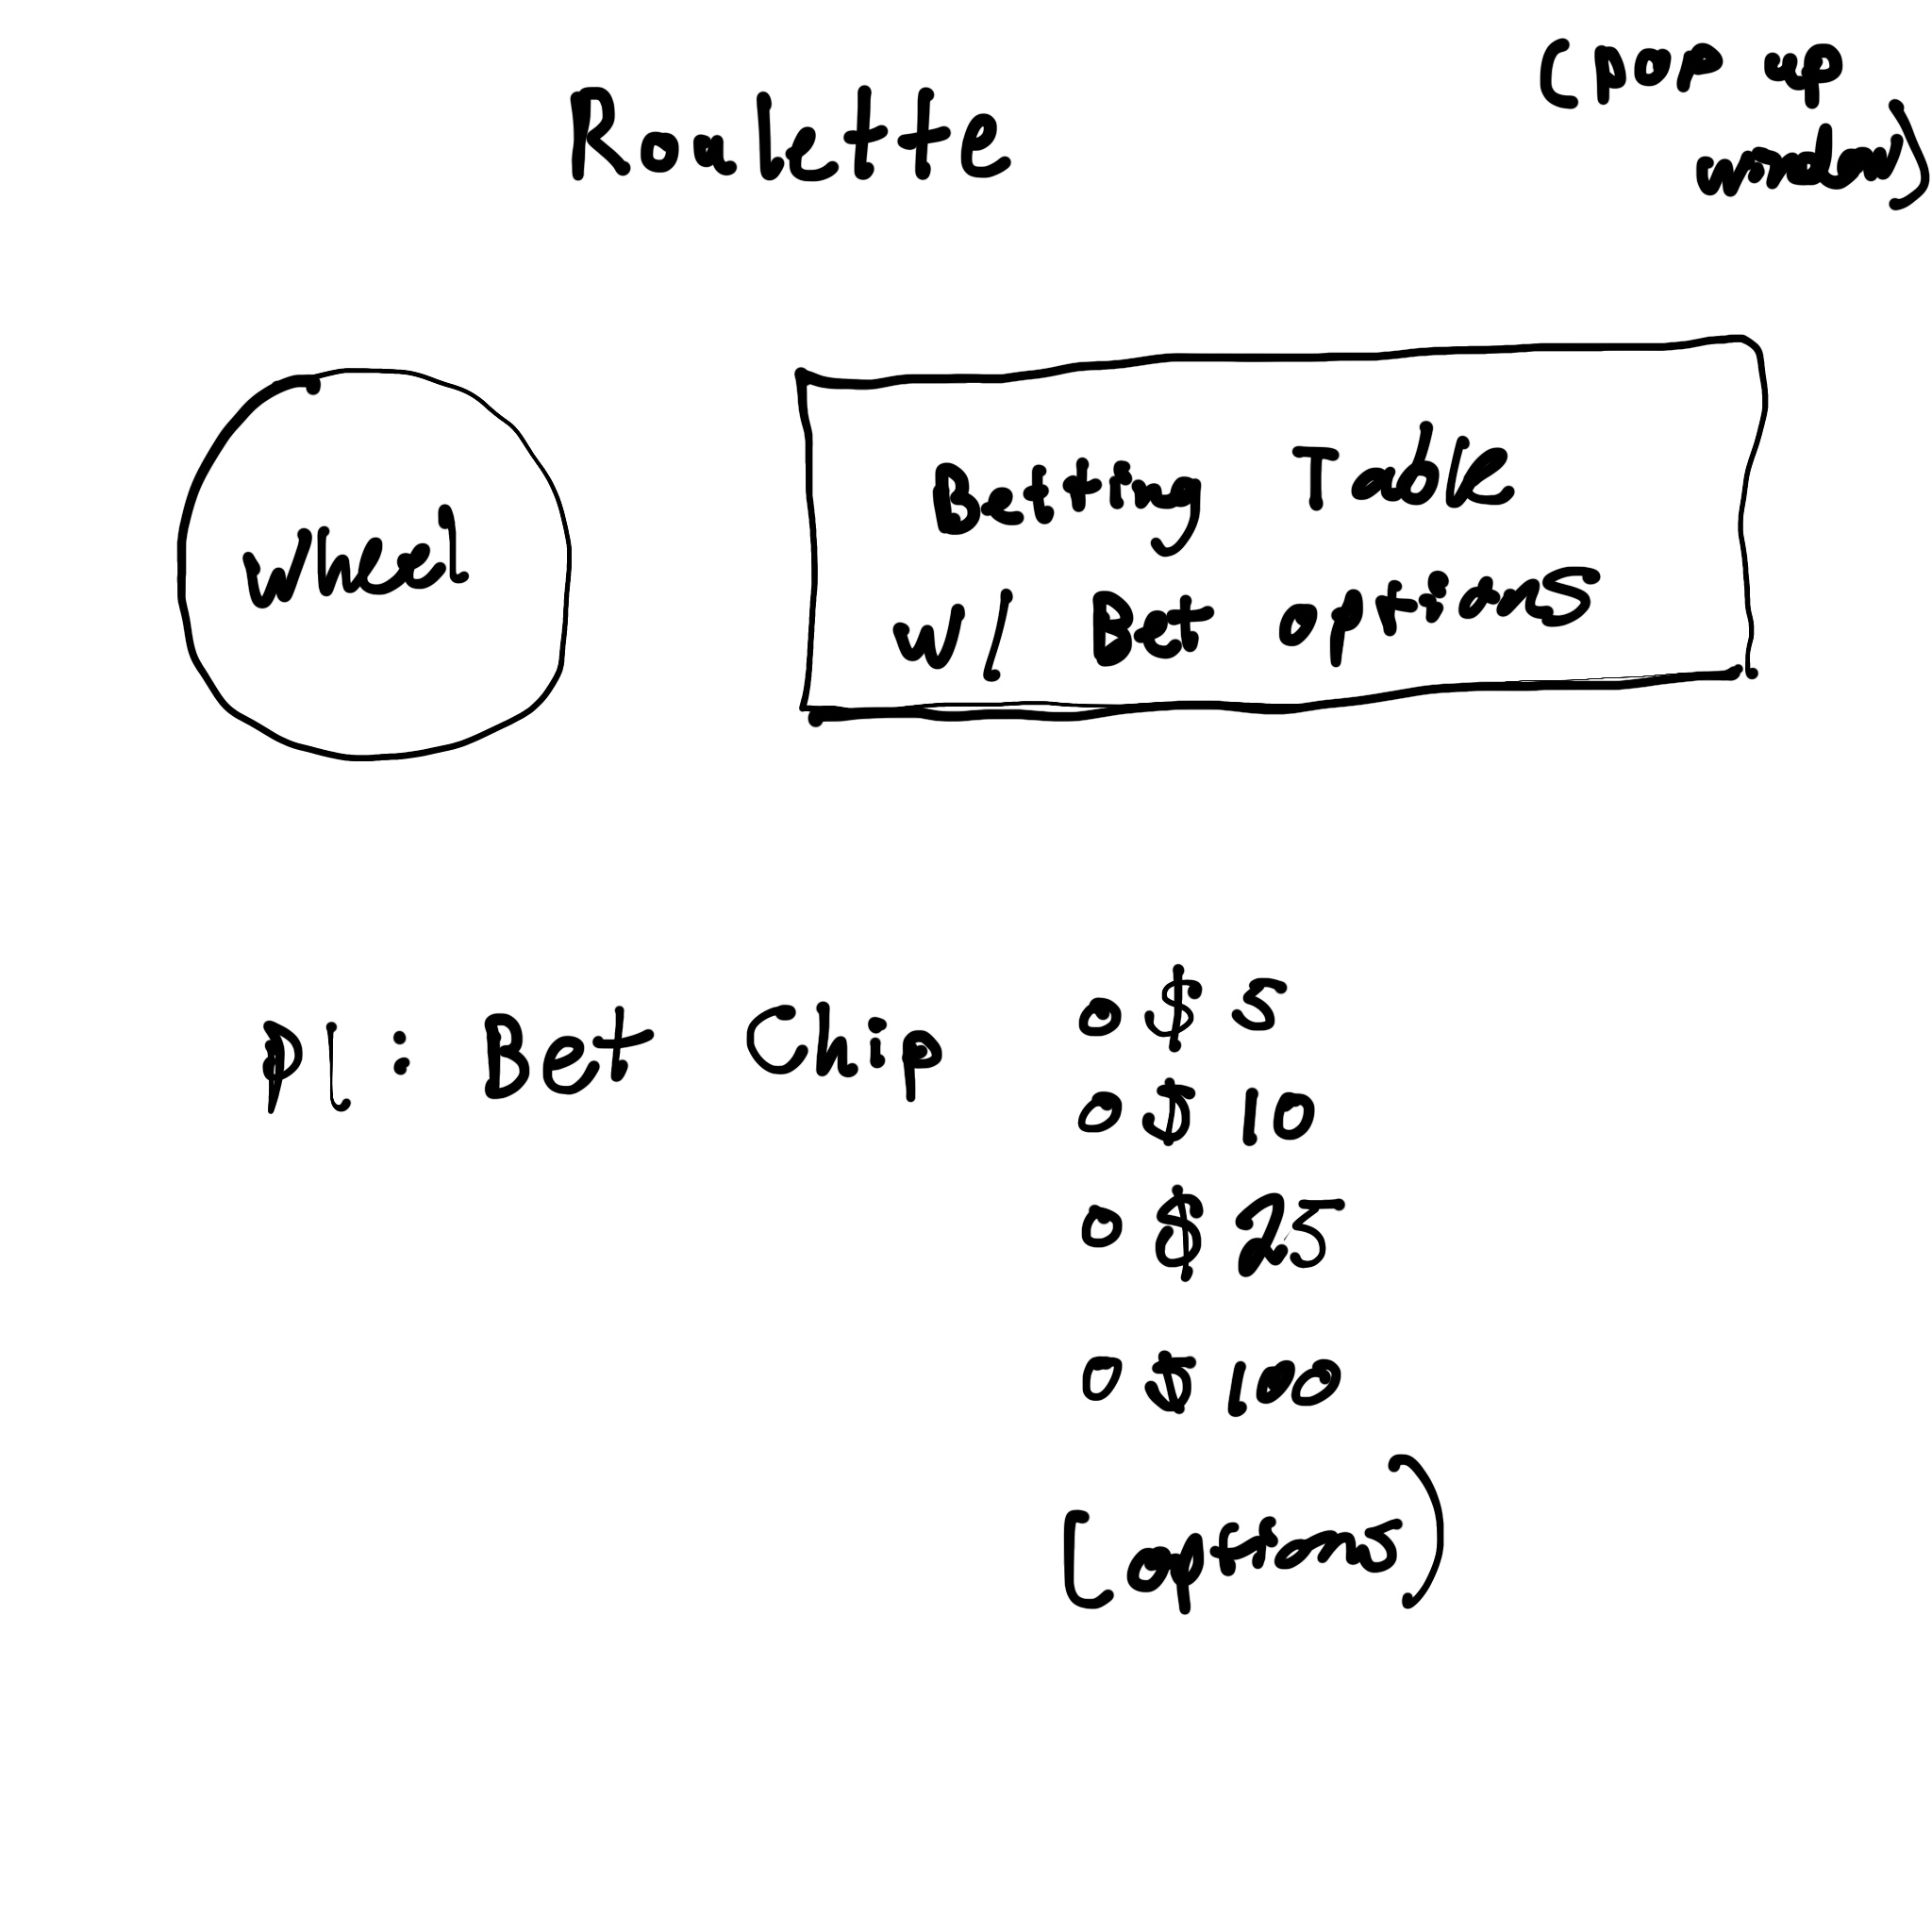 Roulette
(pop up
window)
Wheel
Betting Table
w/ Bet options
P1: Bet Chip
o $5
o $10
o $25
o $100
(options)